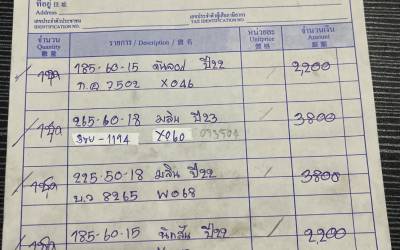 ที่อยู่ 住址
Address
เลขประจำตัวประชาชน
IDENTIFICATION NO.
เลขประจำตัวผู้เสียภาษีอากร
TAX IDENTIFICATION NO.
จำนวน Quantity 數量 รายการ / Description / 貨名 หน่วยละ Unitprice 價格 จำนวนเงิน Amount 銀額
1ชุด 185-60-15 ปี22 2,200
7502 X046
1ชุด 265-60-18 ปี23 3800
1174 X060
1ชุด 225-50-18 ปี22 3800
บ.ว 8265 W068
1ชุด 185-60-15 ปี22 2,200